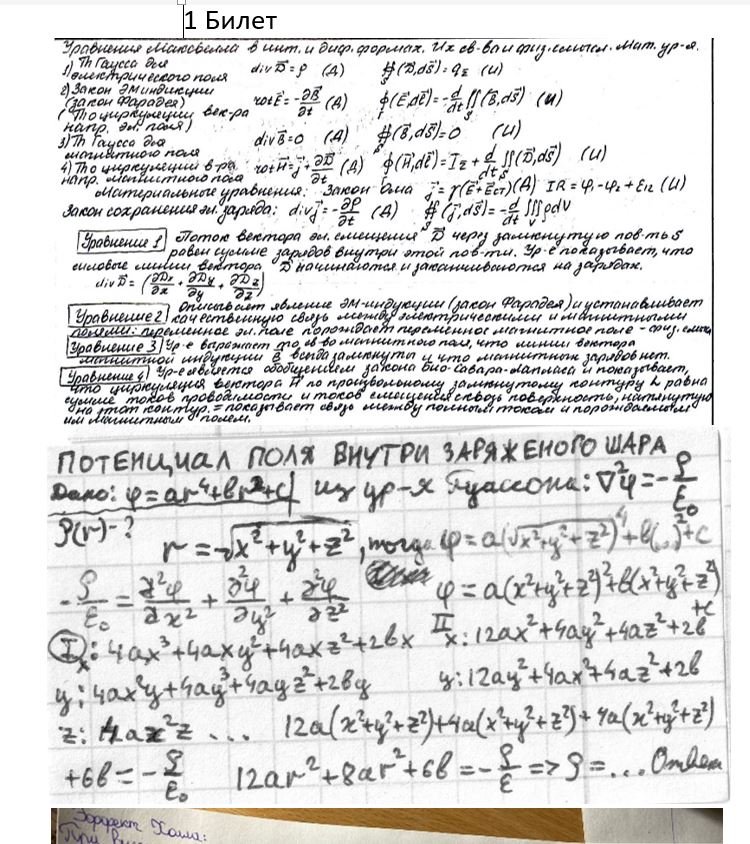 1 Билет
Уравнения Максвелла в инт. и диф. формах. Их св-ва и физ. смысл. Мат. ур-я.
1) Th Гаусса для электрического поля div D⃗ = ρ (Д) ∯(D⃗,dS⃗) = q_Σ (И)
2) Закон ЭМ индукции (закон Фарадея) rot E⃗ = -∂B⃗/∂t (Д) ∮(E⃗,dℓ⃗) = -d/dt ∬(B⃗,dS⃗) (И)
(Th о циркуляции век-ра напр. эл. поля)
3) Th Гаусса для магнитного поля div B⃗ = 0 (Д) ∯(B⃗,dS⃗) = 0 (И)
4) Th о циркуляций в-ра напр. магнитного поля rot H⃗ = j⃗ + ∂D⃗/∂t (Д) ∮(H⃗,dℓ⃗) = I_Σ + d/dt ∬(D⃗,dS⃗) (И)
Материальные уравнения: Закон Ома j⃗ = γ(E⃗+E⃗ст) (Д) IR = φ₁-φ₂+ε₁₂ (И)
Закон сохранения эл. заряда: div j⃗ = -∂ρ/∂t (Д) ∯(j⃗,dS⃗) = -d/dt ∭ρdV
Уравнение 1 Поток вектора эл. смещения D⃗ через замкнутую пов-ть S
равен сумме зарядов внутри этой пов-ти. Ур-е показывает, что
силовые линии вектора D⃗ начинаются и заканчиваются на зарядах.
div D⃗ = (∂Dx/∂x + ∂Dy/∂y + ∂Dz/∂z)
Описывает явление ЭМ-индукции (закон Фарадея) и устанавливает
Уравнение 2 качественную связь между электрическими и магнитными
полями: переменное эл. поле порождает переменное магнитное поле - физ. смысл
Уравнение 3 Ур-е выражает то св-во магнитного поля, что линии вектора
магнитной индукции B⃗ всегда замкнуты и что магнитных зарядов нет.
Уравнение 4 Ур-е является обобщением закона Био-Савара-Лапласа и показывает,
что циркуляция вектора H⃗ по произвольному замкнутому контуру L равна
сумме токов проводимости и токов смещения сквозь поверхность, натянутую
на этот контур. = показывает связь между полным током и порождаемым
им магнитным полем.
ПОТЕНЦИАЛ ПОЛЯ ВНУТРИ ЗАРЯЖЕНОГО ШАРА
Дано: φ=ar⁴+br²+c | из ур-я Пуассона: ∇²φ = -ρ/ε₀
ρ(r)-? r = √x²+y²+z², тогда φ = a(√x²+y²+z²)⁴+b(...)²+c
-ρ/ε₀ = ∂²φ/∂x² + ∂²φ/∂y² + ∂²φ/∂z² φ = a(x²+y²+z²)²+b(x²+y²+z²)+c
I x: 4ax³+4axy²+4axz²+2bx II x: 12ax²+4ay²+4az²+2b
y: 4ax²y+4ay³+4ayz²+2by y: 12ay²+4ax²+4az²+2b
z: 4ax²z ... 12a(x²+y²+z²)+4a(x²+y²+z²)+4a(x²+y²+z²)
+6b = -ρ/ε₀ 12ar²+8ar²+6b = -ρ/ε => ρ = ... Ответ
Эффект Холла:
При